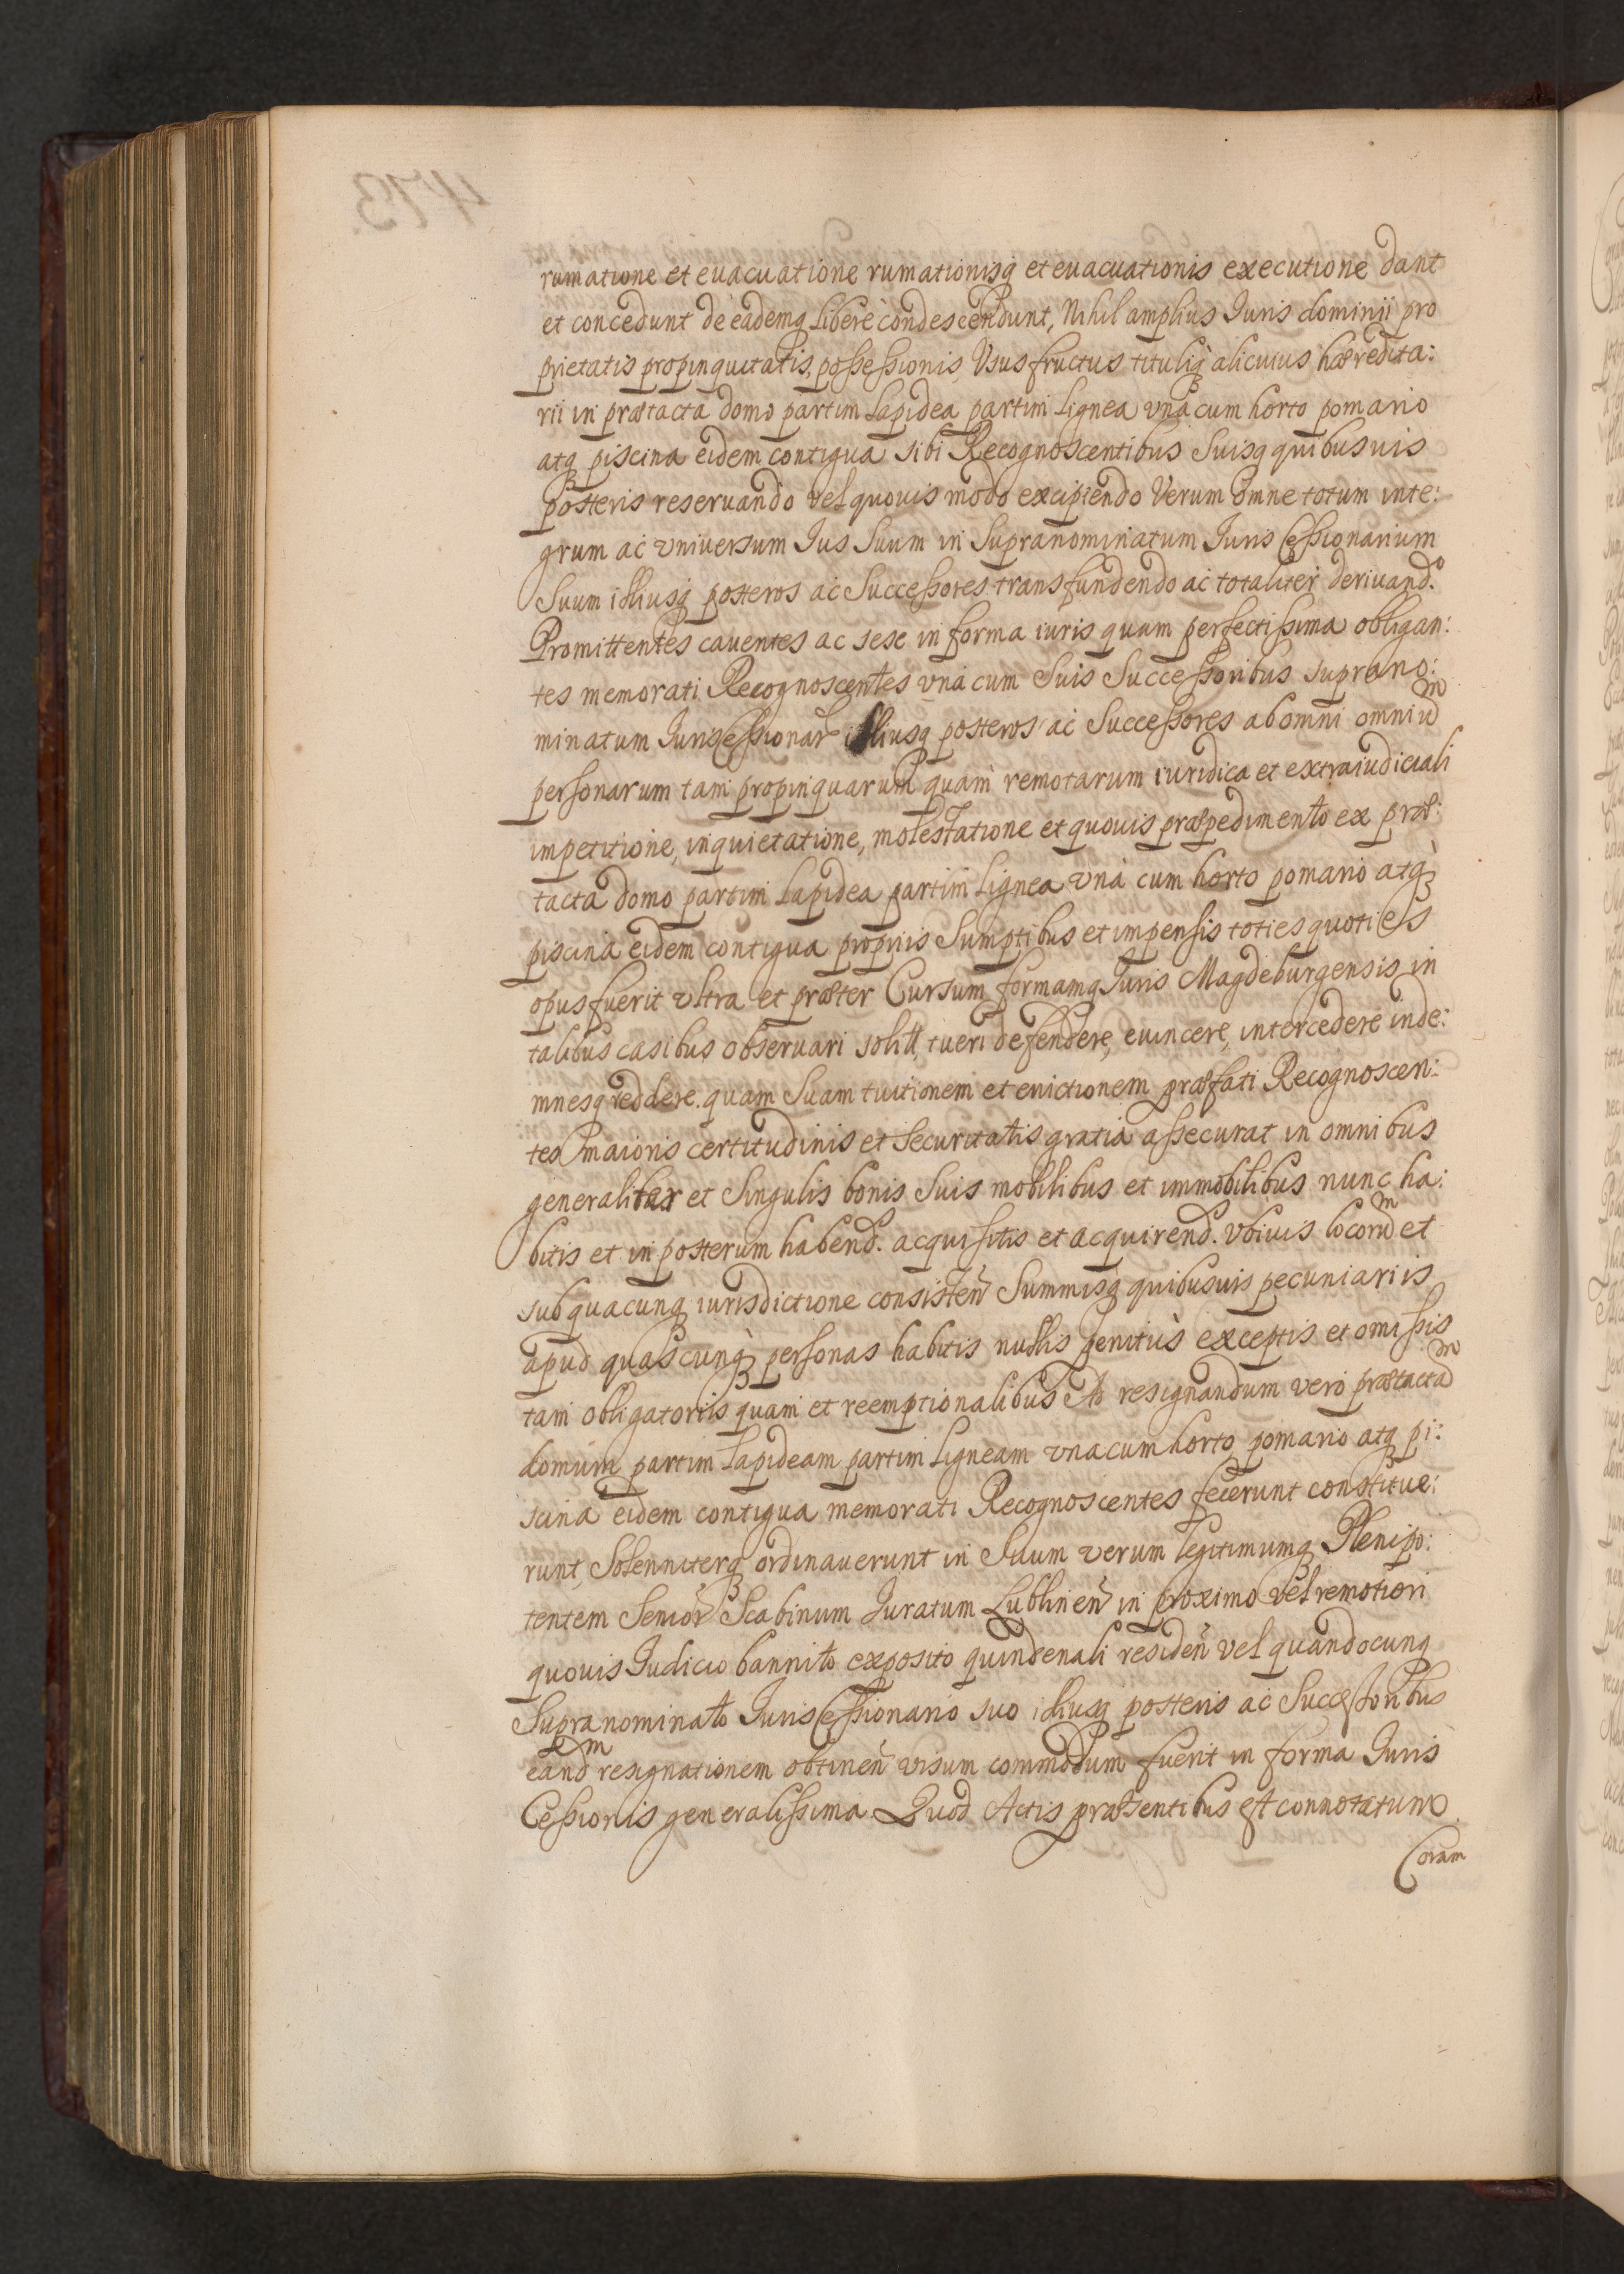 rumatione et euacuatione rumationisq̃ et euacuationis executione dant
et concedunt de eademq̃ Libere condescendunt, Nihil amplius Iuris dominii pro
prietatis propinquitatis, possessionis, Vsusfructus tituliq̃ alicuius hæredita:
rii in prætacta domo partim Lapidea partim Lignea vnà cum horto pomario
atq̃ piscina eidem contigua sibi Recognoscentibus Suisq̃ quibusuis
posteris reseruando vel quouis modo excipiendo Verum omne totum inte:
grum ac vniuersum Ius Suum in Supranominatum Iuris Cessionarium
Suum illiusq̃ posteros ac Successores transfundendo ac totaliter deriuand.º
Promittentes cauentes ac sese in forma iuris quam perfectissima obligan:
tes memorati Recognoscentes vnà cum Suis Successoribus suprano:
minatum Iuris Cessionar̃ illiusq̃ posteros ac Successores ab omni omniũm
personarum tam propinquarum quam remotarum iuridica et extraiudiciali
impetitione, inquietatione, molestatione et quouis præpedimento ex præ:
tacta domo partim Lapidea partim Lignea vnà cum horto pomario atq̃
piscina eidem contigua proprijs Sumptibus et impensis toties quoties
opus fuerit vltra et præter Cursum formamq̃ Iuris Magdeburgensis in
talibus casibus obseruari solitĩ, tueri defendere, euincere, intercedere inde:
mnesq̃ reddere. quam Suam tuitionem et euictionem præfati Recognoscen:
tes maioris certitudinis et Securitatis gratia assecurat in omnibus
generaliter et Singulis bonis Suis mobilibus et immobilibus nunc ha:
bitis et in posterum habend. acquisitis et acquirend. vbiuis locorũm et
sub quacunq̃ iurisdictione consisteñ Summisq̃ quibusuis pecuniariis
apud quascunq̃ personas habitis nullis penitùs exceptis et omissis
tam obligatoriis quam et reemptionalibus Ad resignandum verò prætactam
domum partim Lapideam partim Ligneam vna cum horto pomario atq̃ pi:
scina eidem contigua memorati Recognoscentes fecerunt constitue:
runt, Solenniterq̃ ordinauerunt in Suum verum legitimumq̃ Plenipo:
tentem Senior̃ Scabinum Iuratum Lublineñ in proximo vel remotiori
quouis Iudicio bannito exposito quindenali resideñ vel quandocunq̃
Supranominato Iuris Cessionario suo illiusq̃ posteris ac Successoribus
eandem resignationem obtineñ visum commodum fuerit in forma Iuris
Cessionis generalissima. Quod Actis præsentibus est connotatum
Coram